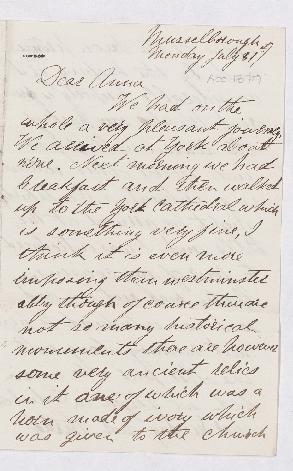 Musselborough
Monday July 31st
Dear Anna
We had on the
whole a very pleasant journey.
We arrived at York about
nine. Next morning we had
breakfast and then walked
up to the York Cathedral which
is something very fine, I
think it is even more
imposing than westminster
abby though of course there are
not so many historical
monuments there are however
some very ancient relics
in it one of which was a
horn made of ivory which
was given to the church